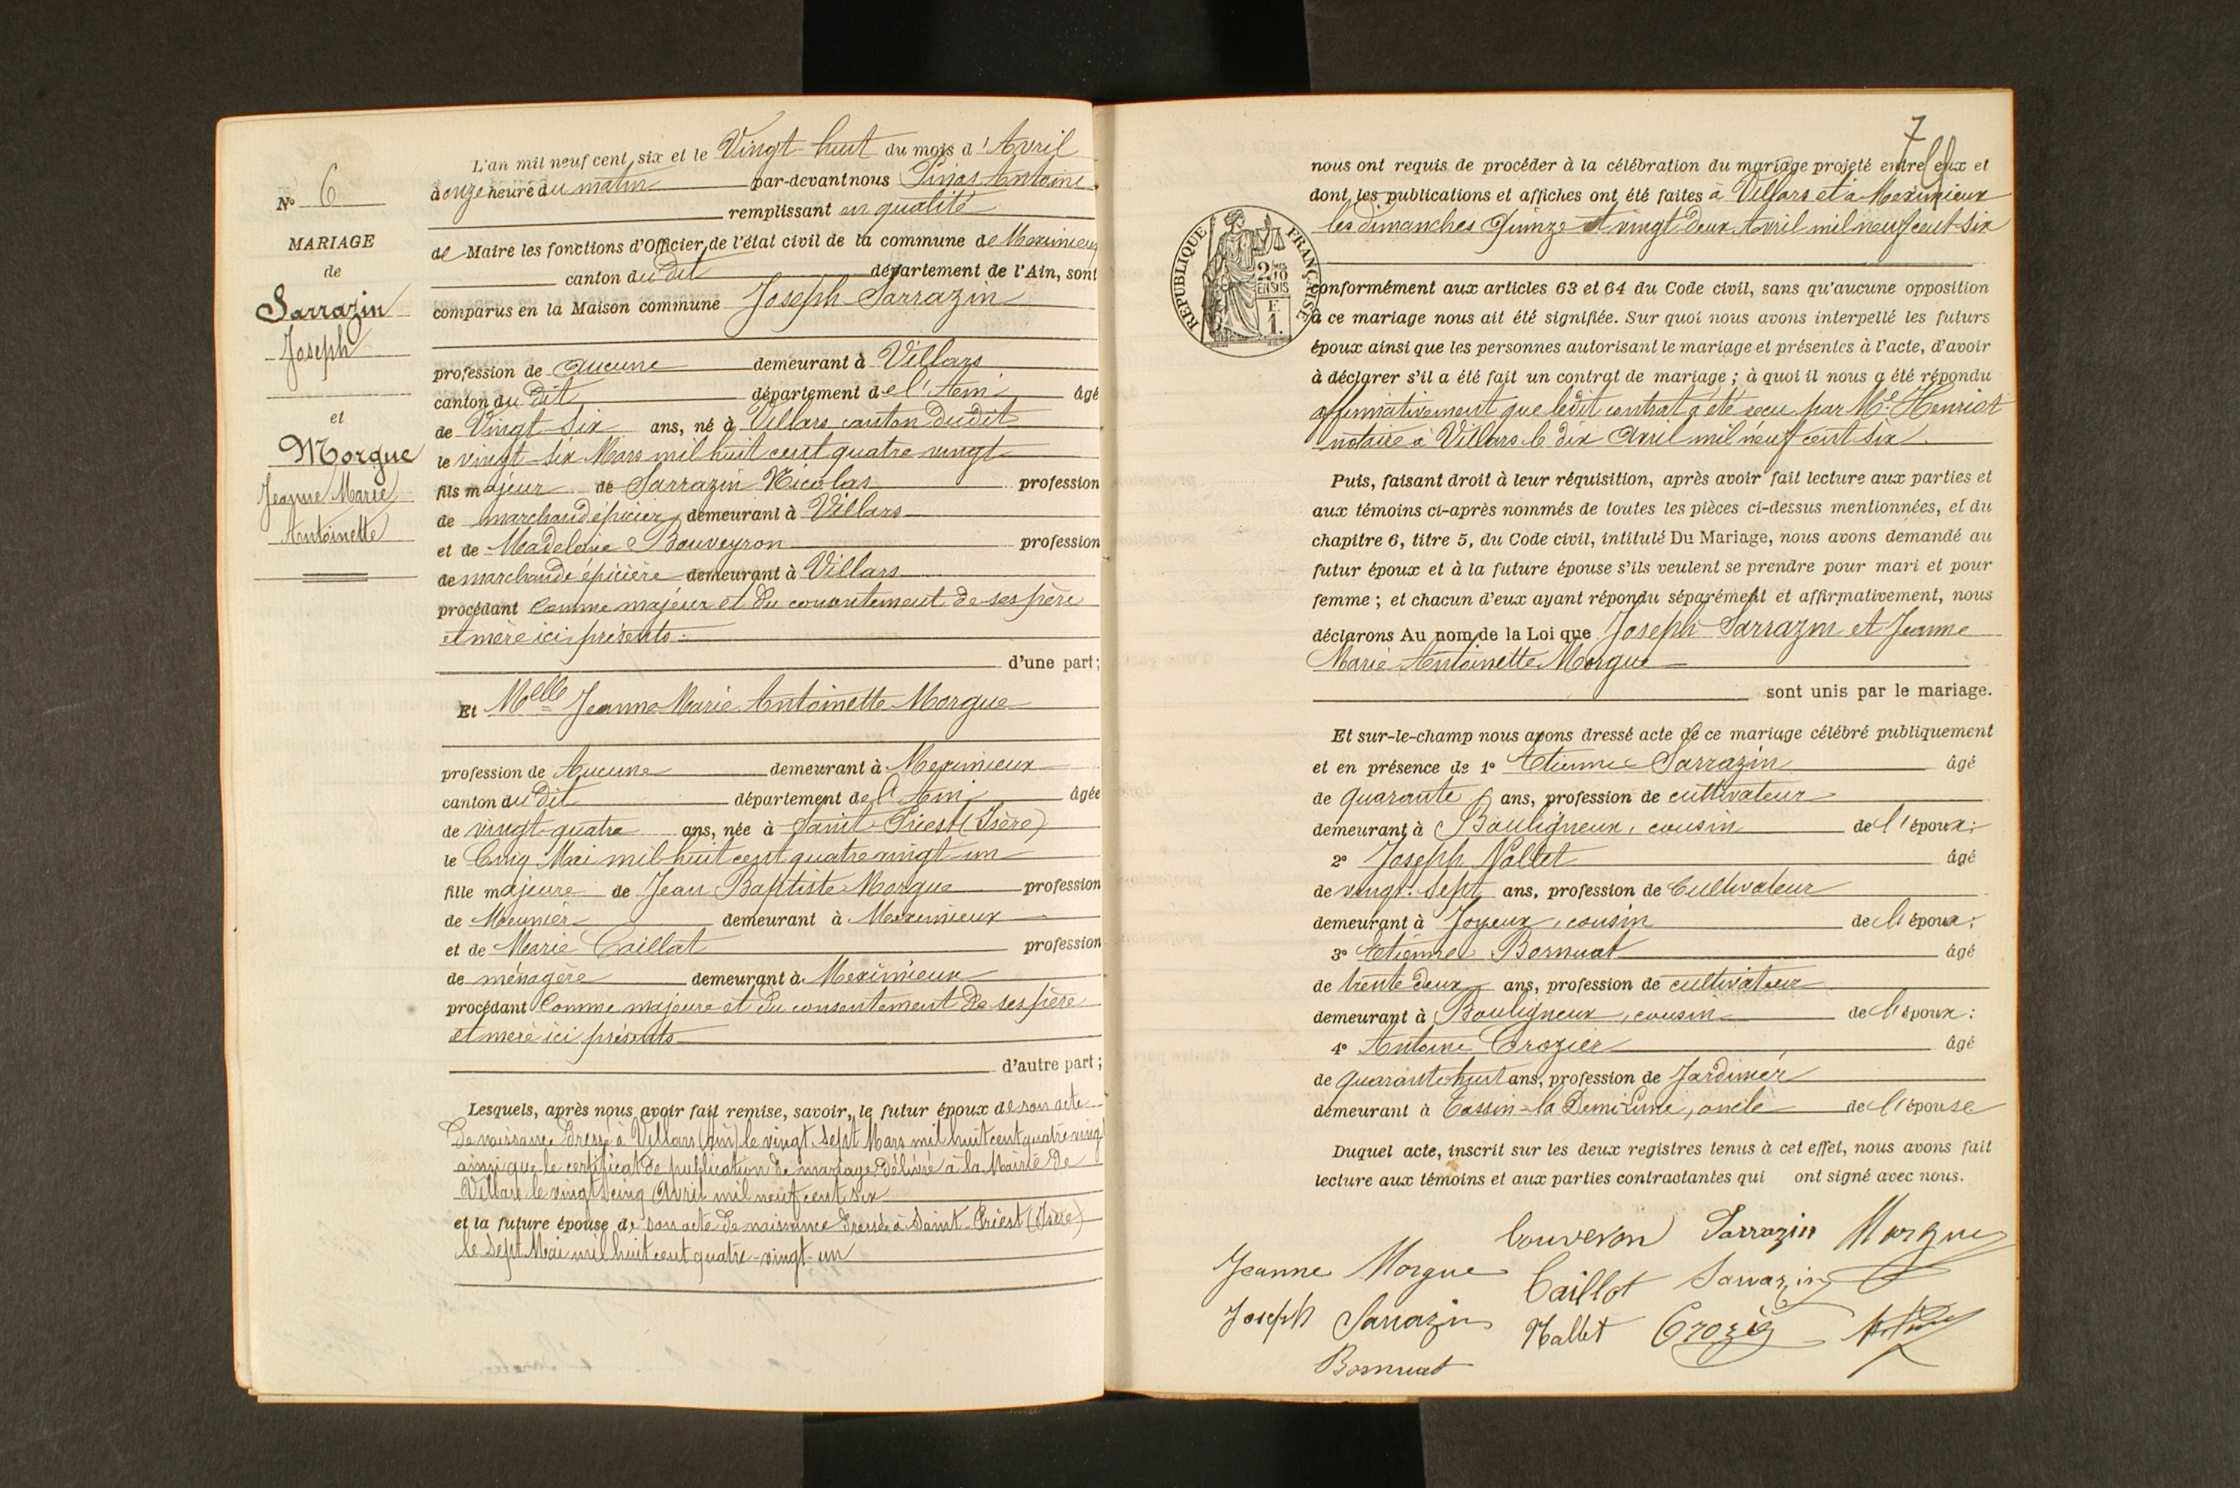 N° 6
MARIAGE
de
Sarrazin
Joseph
et
Morgue
Jeanne Marie
Antoinette
L'an mil neuf cent six et le Vingt-huit du mois d'Avril
à onze heure du matin par-devant nous Pinas Antoine
remplissant en qualité
de Maire les fonctions d'Officier de l'état civil de la commune de Meximieux
canton du dit département de l'Ain, sont
comparus en la Maison commune Joseph Sarrazin
profession de aucune demeurant à Villars
canton du dit département de l'Ain âgé
de Vingt-six ans, né à Villars canton dudit
le vingt-six Mars mil huit cent quatre vingt
fils majeur de Sarrazin Nicolas profession
de marchand épicier demeurant à Villars
et de Madeleine Bouveyron profession
de marchande épicière demeurant à Villars
procédant comme majeur et du consentement de ses père
et mère ici présents
d'une part;
Et Melle Jeanne Marie Antoinette Morgue
profession de Aucune demeurant à Meximieux
canton du dit département de l'Ain âgée
de vingt-quatre ans, née à Saint-Priest (Isère)
le Cinq Mai mil huit cent quatre vingt-un
fille majeure de Jean Baptiste Morgue profession
de Meunier demeurant à Meximieux
et de Marie Caillat profession
de ménagère demeurant à Meximieux
procédant Comme majeure et du consentement de ses père
et mère ici présents
d'autre part;
Lesquels, après nous avoir fait remise, savoir, le futur époux de son acte
de naissance dressé à Villars (Ain) le vingt-sept Mars mil huit cent quatre-vingt
ainsi que le certificat de publication de mariage délivré à la Mairie de
Villars le vingt-cinq Avril mil neuf cent six
et la future épouse de son acte de naissance dressé à Saint-Priest (Isère)
le sept Mai mil huit cent quatre-vingt-un
7
nous ont requis de procéder à la célébration du mariage projeté entre eux et
dont les publications et affiches ont été faites à Villars et à Meximieux
les dimanches Quinze et vingt deux Avril mil neuf cent six
RÉPUBLIQUE FRANÇAISE
2/10
EN SUS
F.
1.
conformément aux articles 63 et 64 du Code civil, sans qu'aucune opposition
à ce mariage nous ait été signifiée. Sur quoi nous avons interpellé les futurs
époux ainsi que les personnes autorisant le mariage et présentes à l'acte, d'avoir
à déclarer s'il a été fait un contrat de mariage; à quoi il nous a été répondu
affirmativement que ledit contrat a été reçu par Me Henriot
notaire à Villars le dix Avril mil neuf cent six.
Puis, faisant droit à leur réquisition, après avoir fait lecture aux parties et
aux témoins ci-après nommés de toutes les pièces ci-dessus mentionnées, et du
chapitre 6, titre 5, du Code civil, intitulé Du Mariage, nous avons demandé au
futur époux et à la future épouse s'ils veulent se prendre pour mari et pour
femme; et chacun d'eux ayant répondu séparément et affirmativement, nous
déclarons Au nom de la Loi que Joseph Sarrazin et Jeanne
Marie Antoinette Morgue
sont unis par le mariage.
Et sur-le-champ nous avons dressé acte de ce mariage célébré publiquement
et en présence de 1° Etienne Sarrazin âgé
de quarante ans, profession de cultivateur
demeurant à Bouligneux, cousin de l'époux;
2° Joseph Nallet âgé
de vingt-sept ans, profession de Cultivateur
demeurant à Joyeux, cousin de l'époux;
3° Etienne Bornuat âgé
de trente deux ans, profession de cultivateur
demeurant à Bouligneux, cousin de l'époux;
4° Antoine Crozier âgé
de quarante-huit ans, profession de Jardinier
demeurant à Tassin-la Demi-Lune, oncle de l'épouse
Duquel acte, inscrit sur les deux registres tenus à cet effet, nous avons fait
lecture aux témoins et aux parties contractantes qui ont signé avec nous.
Bouveron Sarrazin Morgue
Jeanne Morgue Caillot Sarrazin
Joseph Sarrazin Nallet Crozier
Bornuat